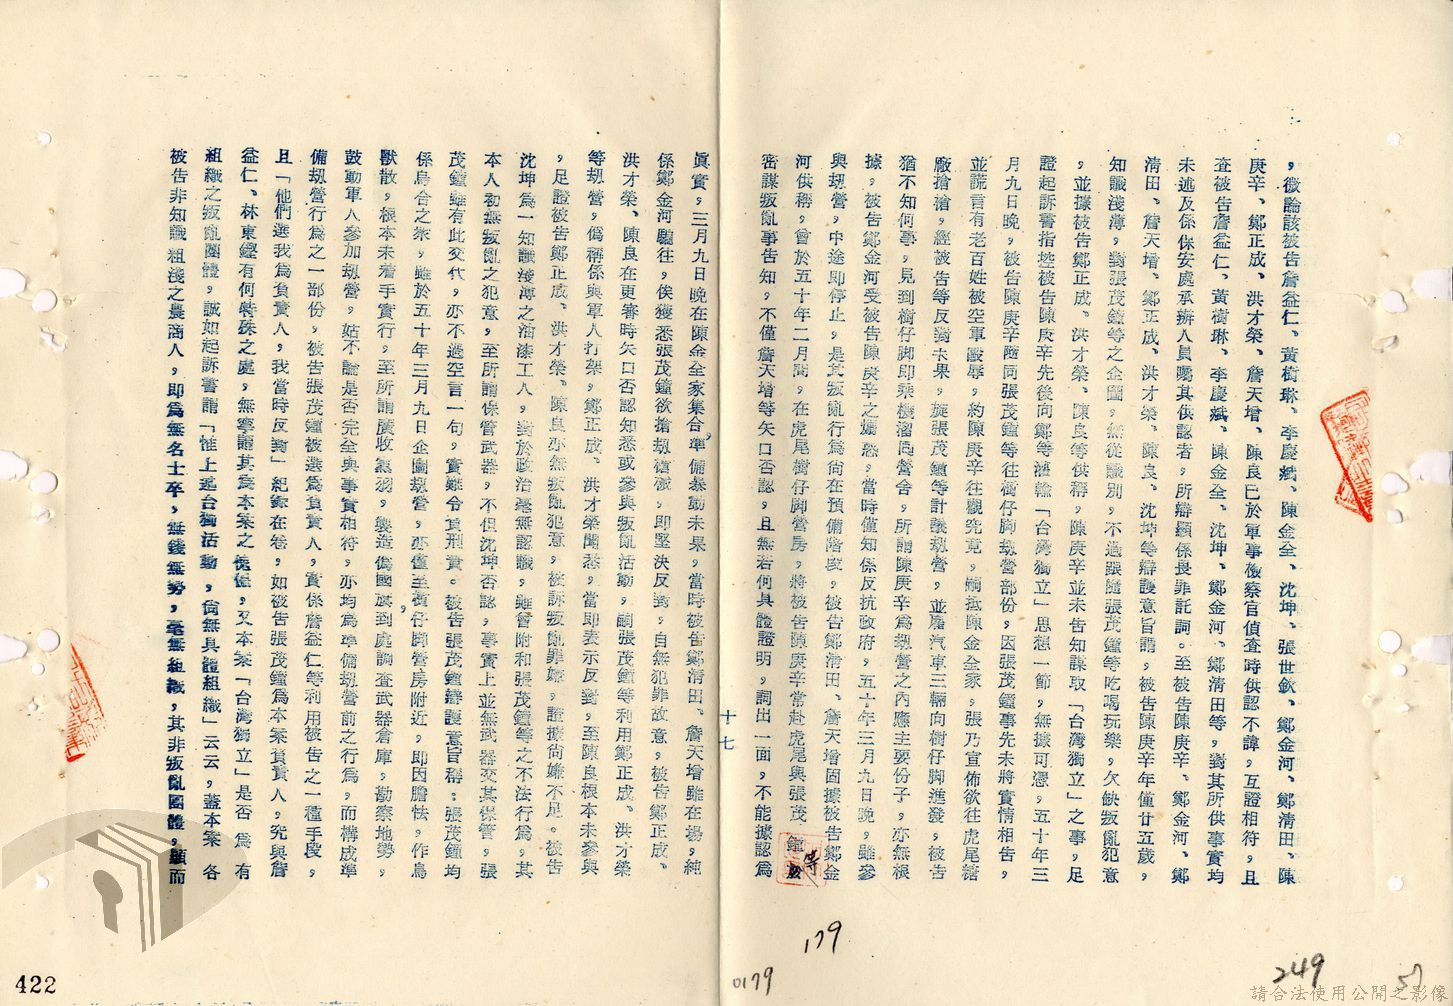 ，徵論該被告詹益仁、黃樹琳、李慶斌、陳金全、沈坤、張世欽、鄭金河、鄭清田、陳
庚辛、鄭正成、洪才榮、詹天增、陳良已於軍事檢察官偵查時供認不諱，互證相符，且
查被告詹益仁、黃樹琳、李慶斌、陳金全、沈坤、鄭金河、鄭清田等，對其所供事實均
未述及係保安處承辦人員囑其供認者，所辯顯係畏罪託詞。至被告陳庚辛、鄭金河、鄭
清田、詹天增、鄭正成、洪才榮、陳良、沈坤等辯護意旨謂，被告陳庚辛年僅廿五歲，
知識淺薄，對張茂鐘等之企圖，無從識別，不過跟隨張茂鐘等吃喝玩樂，欠缺叛亂犯意
，並據被告鄭正成、洪才榮、陳良等供稱，陳庚辛並未告知謀取「台灣獨立」之事，足
證起訴書指控被告陳庚辛先後向鄭等灌輸「台灣獨立」思想一節，無據可憑，五十年三
月九日晚，被告陳庚辛隨同張茂鐘等往樹仔脚刼營部份，因張茂鐘事先未將實情相告，
並謊言有老百姓被空軍毆辱，約陳庚辛往觀究竟，嗣抵陳金全家，張乃宣佈欲往虎尾糖
廠搶搶，經被告等反對未果，旋張茂鐘等計議刼營，並僱汽車三輛向樹仔脚進發，被告
猶不知何事，見到樹仔脚即乘機溜回營舍，所謂陳庚辛爲刼營之內應主要份子，亦無根
據，被告鄭金河受被告陳庚辛之煽惑，當時僅知係反抗政府，五十年三月九日晚，雖參
與刼營，中途即停止，是其叛亂行爲尚在預備階段，被告鄭清田、詹天增固據被告鄭金
河供稱，曾於五十年二月間，在虎尾樹仔脚營房，將被告陳庚辛常赴虎尾與張茂鐘等
密謀叛亂事告知，不僅詹天增等矢口否認，且無若何具體證明，詞出一面，不能據認爲
十七
眞實，三月九日晚在陳金全家集合，準備暴動未果，當時被告鄭清田、詹天增雖在場，純
係鄭金河騙往，俟獲悉張茂鐘欲搶刼槍械，即堅決反對，自無犯罪故意，被告鄭正成、
洪才榮、陳良在更審時矢口否認知悉或參與叛亂活動，嗣張茂鐘等利用鄭正成、洪才榮
等刼營，僞稱係與軍人打架，鄭正成、洪才榮聞悉，當即表示反對，至陳良根本未參與
，足證被告鄭正成、洪才榮、陳良亦無叛亂犯意，被訴叛亂罪嫌，證據尚嫌不足。被告
沈坤爲一知識淺薄之油漆工人，對於政治毫無認識，雖曾附和張茂鐘等之不法行爲，其
本人初無叛亂之犯意，至所謂保管武器，不但沈坤否認，事實上並無武器交其保管，張
茂鐘雖有此交代，亦不過空言一句，實難令負刑責。被告張茂鐘辯護意旨稱：張茂鐘均
係烏合之衆，雖於五十年三月九日企圖刼營，亦僅至樹仔脚營房附近，即因膽怯，作鳥
獸散，根本未着手實行，至所謂廣收黨羽，製造僞國旗到處調查武器倉庫，勘察地勢，
鼓動軍人參加刼營，姑不論是否完全與事實相符，亦均爲準備刼營前之行爲，而構成準
備刼營行爲之一部份，被告張茂鐘被選爲負責人，實係詹益仁等利用被告之一種手段，
且「他們選我爲負責人，我當時反對」紀錄在卷，如被告張茂鐘爲本案負責人，究與詹
益仁、林東鏗有何特殊之處，無寧謂其爲本案之傀儡，又本案「台灣獨立」是否爲有
組織之叛亂團體，誠如起訴書謂「惟上述台獨活動，尙無具體組織」云云，蓋本案各
被告非知識粗淺之農商人，即爲無名士卒，無錢無勢，毫無組織，其非叛亂團體，顯而
422
179
0179
249
請合法使用公開之影像